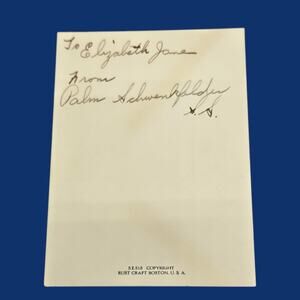 To Elizabeth Jane
From
Palm Schwenkfelder
S.S.
COPYRIGHT
RUST CRAFT BOSTON, U. S. A.